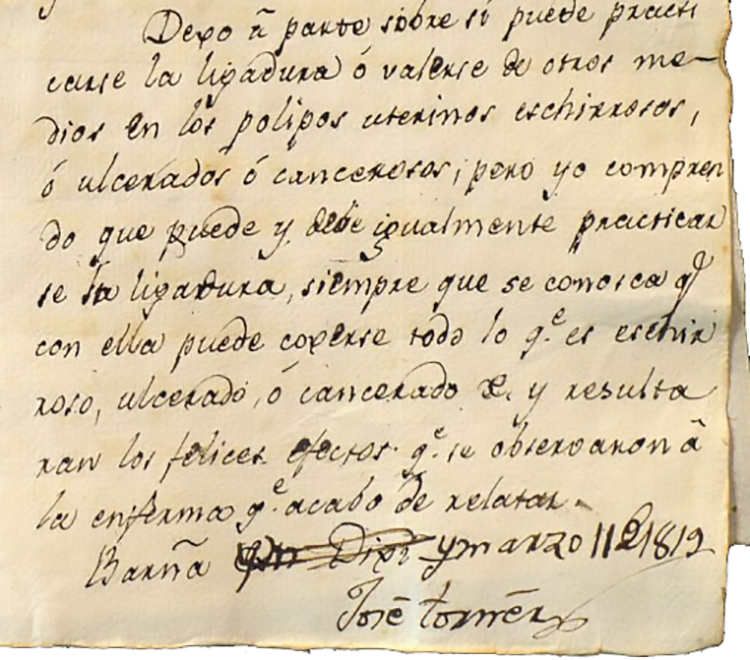 Dexo á parte sobre si puede practi
carse la ligadura ó valerse de otros me-
dios en los polipos uterinos eschirrosos,
ó ulcerados ó cancerosos; pero yo compren
do que puede y debe igualmente practicar
se la ligadura, siempre que se conosca q.e
con ella puede coxerse todo lo q.e es eschir
roso, ulcerado, ó cancerado &. y resulta
ran los felices efectos q.e se observaron á
la enferma q.e acabo de relatar.
Barña y marzo 11 1819
José Torner